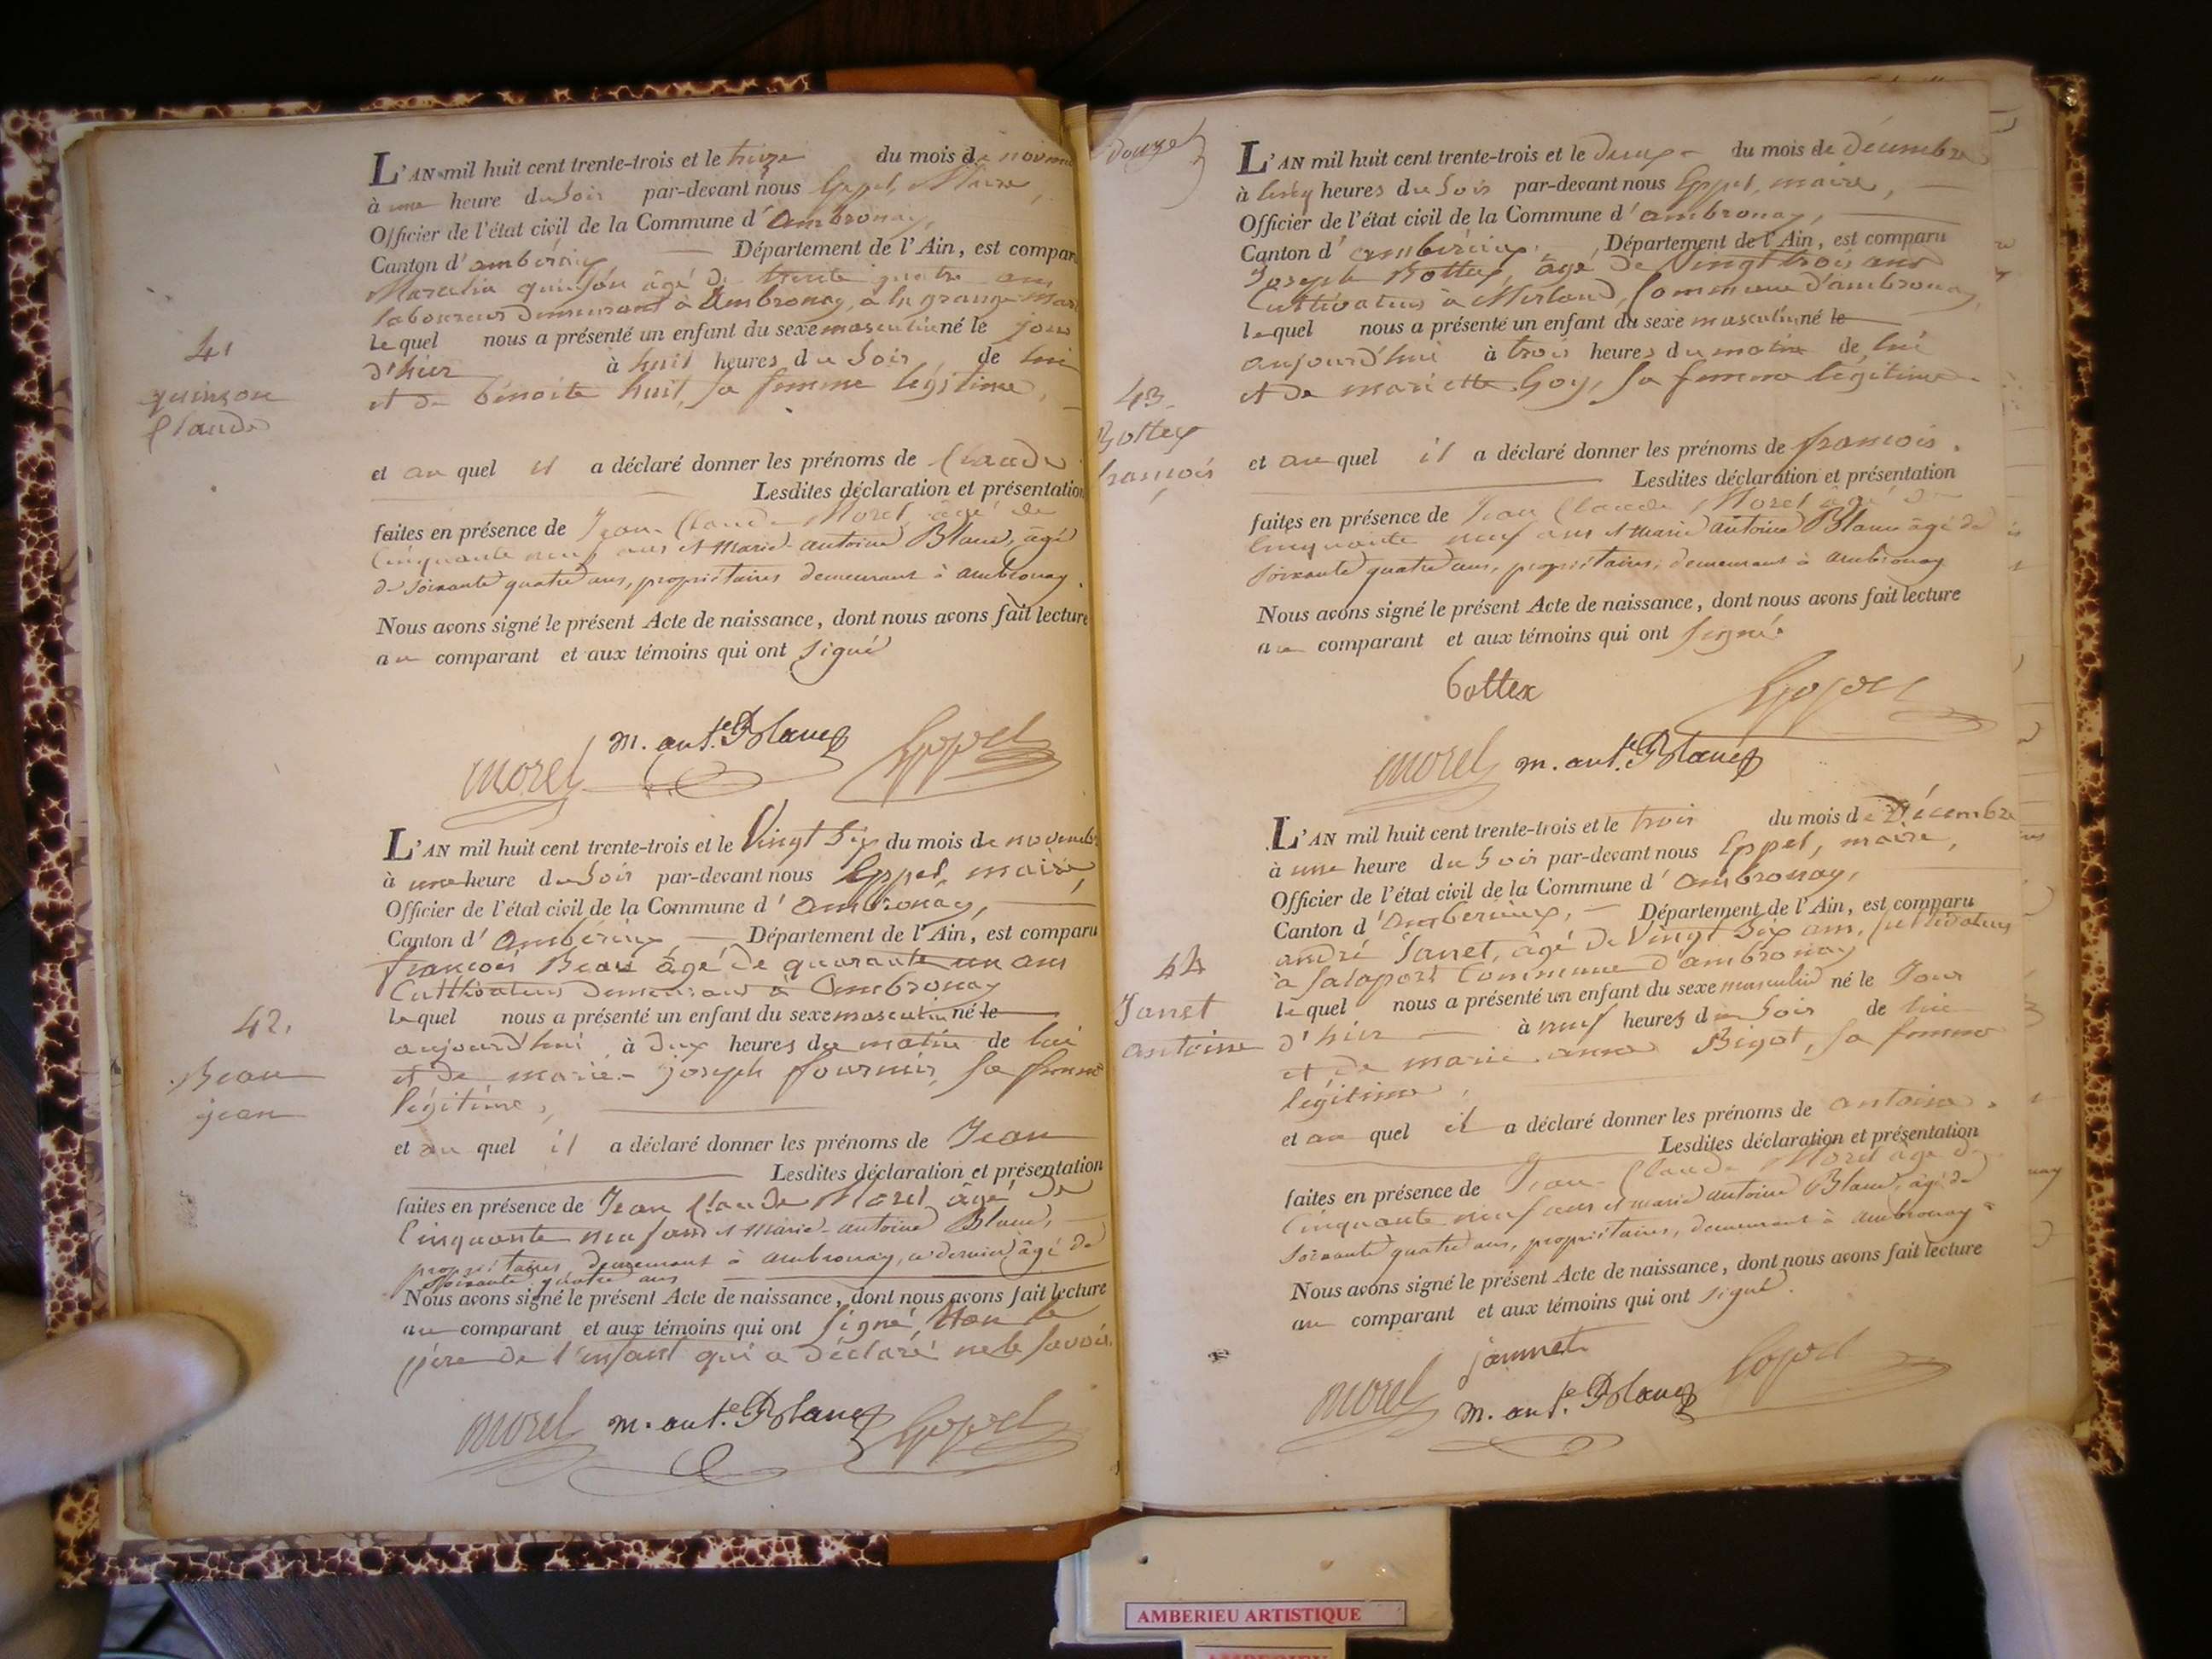 41
quinson
Claude
L'AN mil huit cent trente-trois et le treize du mois de novem
à une heure du soir par-devant nous Eppel, Maire,
Officier de l'état civil de la Commune d'ambronay,
Canton d'ambérieux — Département de l'Ain, est compar
quinson âgé de trente quatre ans
laboureur demeurant à Ambronay, à la grange
lequel nous a présenté un enfant du sexe masculin né le jour
d'hier à huit heures du soir, de lui
et de benoite huit, sa femme légitime,
et au quel il a déclaré donner les prénoms de Claude
Lesdites déclaration et présentation
faites en présence de Jean Claude Morel âgé de
Cinquante neuf ans et Marie-antoine Blanc, âgé
de soixante quatre ans, propriétaires demeurant à ambronay.
Nous avons signé le présent Acte de naissance, dont nous avons fait lecture
au comparant et aux témoins qui ont signé
morel m. ant.e Blanc Eppel
42.
Beau
jean
L'AN mil huit cent trente-trois et le Vingt six du mois de novembre
à une heure du soir par-devant nous Eppel, maire,
Officier de l'état civil de la Commune d'ambronay,
Canton d'Ambérieux — Département de l'Ain, est comparu
françois Beau âgé de quarante un ans
Cultivateur demeurant à Ambronay
lequel nous a présenté un enfant du sexe masculin né le
aujourd'hui à dix heures du matin de lui
et de marie-joseph fournier, sa femme
légitime,
et au quel il a déclaré donner les prénoms de Jean
Lesdites déclaration et présentation
faites en présence de Jean Claude Morel âgé de
Cinquante neuf ans et Marie-antoine Blanc,
propriétaires demeurant à ambronay, ce dernier âgé de
soixante quatre ans
Nous avons signé le présent Acte de naissance, dont nous avons fait lecture
au comparant et aux témoins qui ont signé, Non le
père de l'enfant qui a déclaré ne le savoir.
morel m. ant.e Blanc Eppel
douze
43.
Bottex
françois
L'AN mil huit cent trente-trois et le deux du mois de décembre
à cinq heures du soir par-devant nous Eppel, maire,
Officier de l'état civil de la Commune d'ambronay,
Canton d'ambérieux, Département de l'Ain, est comparu
Joseph Bottex, âgé de Vingt trois ans
Cultivateur à Merland, Commune d'ambronay,
lequel nous a présenté un enfant du sexe masculin né le
aujourd'hui à trois heures du matin de lui
et de mariette Goy, sa femme légitime.
et au quel il a déclaré donner les prénoms de françois.
Lesdites déclaration et présentation
faites en présence de Jean Claude Morel âgé de
Cinquante neuf ans et Marie antoine Blanc âgé de
soixante quatre ans, propriétaires, demeurant à ambronay
Nous avons signé le présent Acte de naissance, dont nous avons fait lecture
au comparant et aux témoins qui ont signé.
bottex Eppel
morel m. ant.e Blanc
44
Janet
antoine
L'AN mil huit cent trente-trois et le trois du mois de Décembre
à une heure du soir par-devant nous Eppel, maire,
Officier de l'état civil de la Commune d'ambronay,
Canton d'Ambérieux, — Département de l'Ain, est comparu
andré Janet, âgé de Vingt six ans, Cultivateur
à Salaport Commune d'ambronay
lequel nous a présenté un enfant du sexe masculin né le Jour
d'hier à neuf heures du soir de lui
et de marie anne Bigot, sa femme
légitime,
et au quel il a déclaré donner les prénoms de antoine.
Lesdites déclaration et présentation
faites en présence de Jean Claude Morel âgé de
Cinquante neuf ans et marie antoine Blanc, âgé de
soixante quatre ans, propriétaires, demeurant à ambronay
Nous avons signé le présent Acte de naissance, dont nous avons fait lecture
au comparant et aux témoins qui ont signé.
jannet Eppel
morel m. ant.e Blanc
AMBERIEU ARTISTIQUE